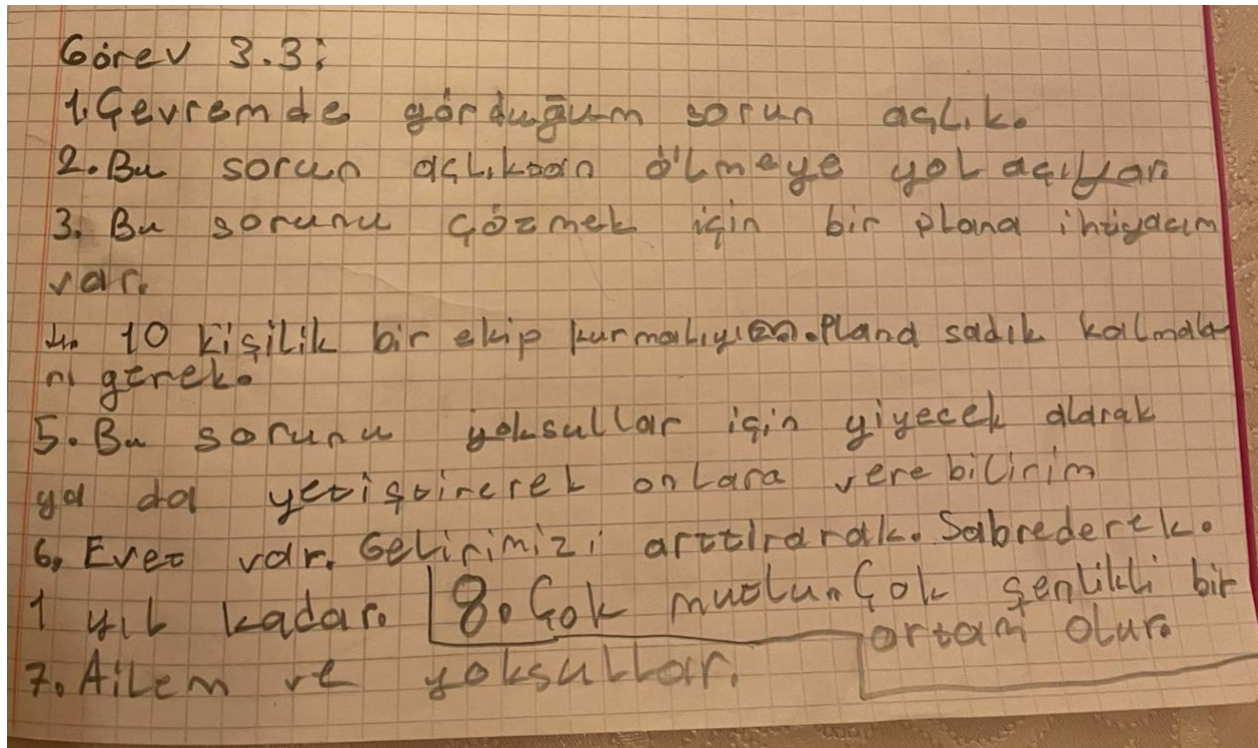 Görev 3.3:
1. Çevremde gördüğüm sorun açlık.
2. Bu sorun açlıktan ölmeye yol
3. Bu sorunu çözmek için bir plana ihtiyacım
var.
4. 10 kişilik bir ekip kurmalıyım. Plana sadık kalmala-
rı gerek.
5. Bu sorunu yoksullar için yiyecek alarak
ya da yetiştirerek onlara verebilirim
6. Evet var. Gelirimizi arttırarak. Sabrederek.
1 yıl kadar.
7. Ailem ve yoksullar.
8. Çok mutlu. Çok şenlikli bir
ortam olur.